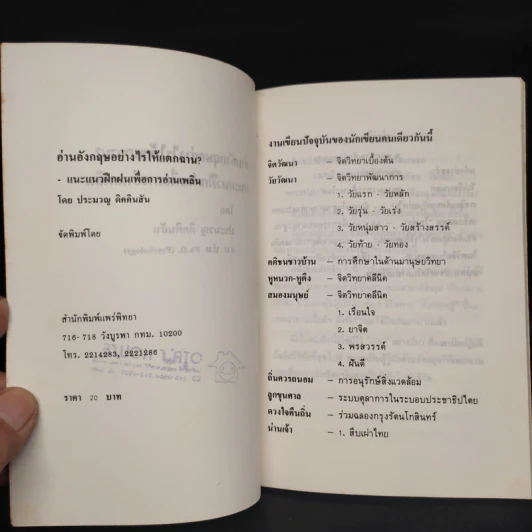 อ่านอังกฤษอย่างไรให้แตกฉาน?
- แนะแนวฝึกฝนเพื่อการอ่านเพลิน
โดย ประมวญ ดิคคินสัน
จัดพิมพ์โดย
สำนักพิมพ์แพร่พิทยา
716-718 วังบูรพา กทม. 10200
โทร. 2214283, 2221286
ราคา 20 บาท
งานเขียนปัจจุบันของนักเขียนคนเดียวกันนี้
จิตวัฒนา - จิตวิทยาเบื้องต้น
วัยวัฒนา - จิตวิทยาพัฒนาการ
1. วัยแรก - วัยหลัก
2. วัยรุ่น - วัยเร่ง
3. วัยหนุ่มสาว - วัยสร้างสรรค์
4. วัยท้าย - วัยทอง
คติชนชาวบ้าน - การศึกษาในด้านมานุษยวิทยา
หูหนวก-หูตึง - จิตวิทยาคลีนิค
สมองมนุษย์ - จิตวิทยาคลีนิค
1. เรือนใจ
2. ยาจิต
3. พรสวรรค์
4. ฝันดี
ถิ่นควรถนอม - การอนุรักษ์สิ่งแวดล้อม
ลูกขุนศาล - ระบบตุลาการในระบอบประชาธิปไตย
ดวงใจคืนถิ่น - ร่วมฉลองกรุงรัตนโกสินทร์
น่านเจ้า - 1. สืบเผ่าไทย